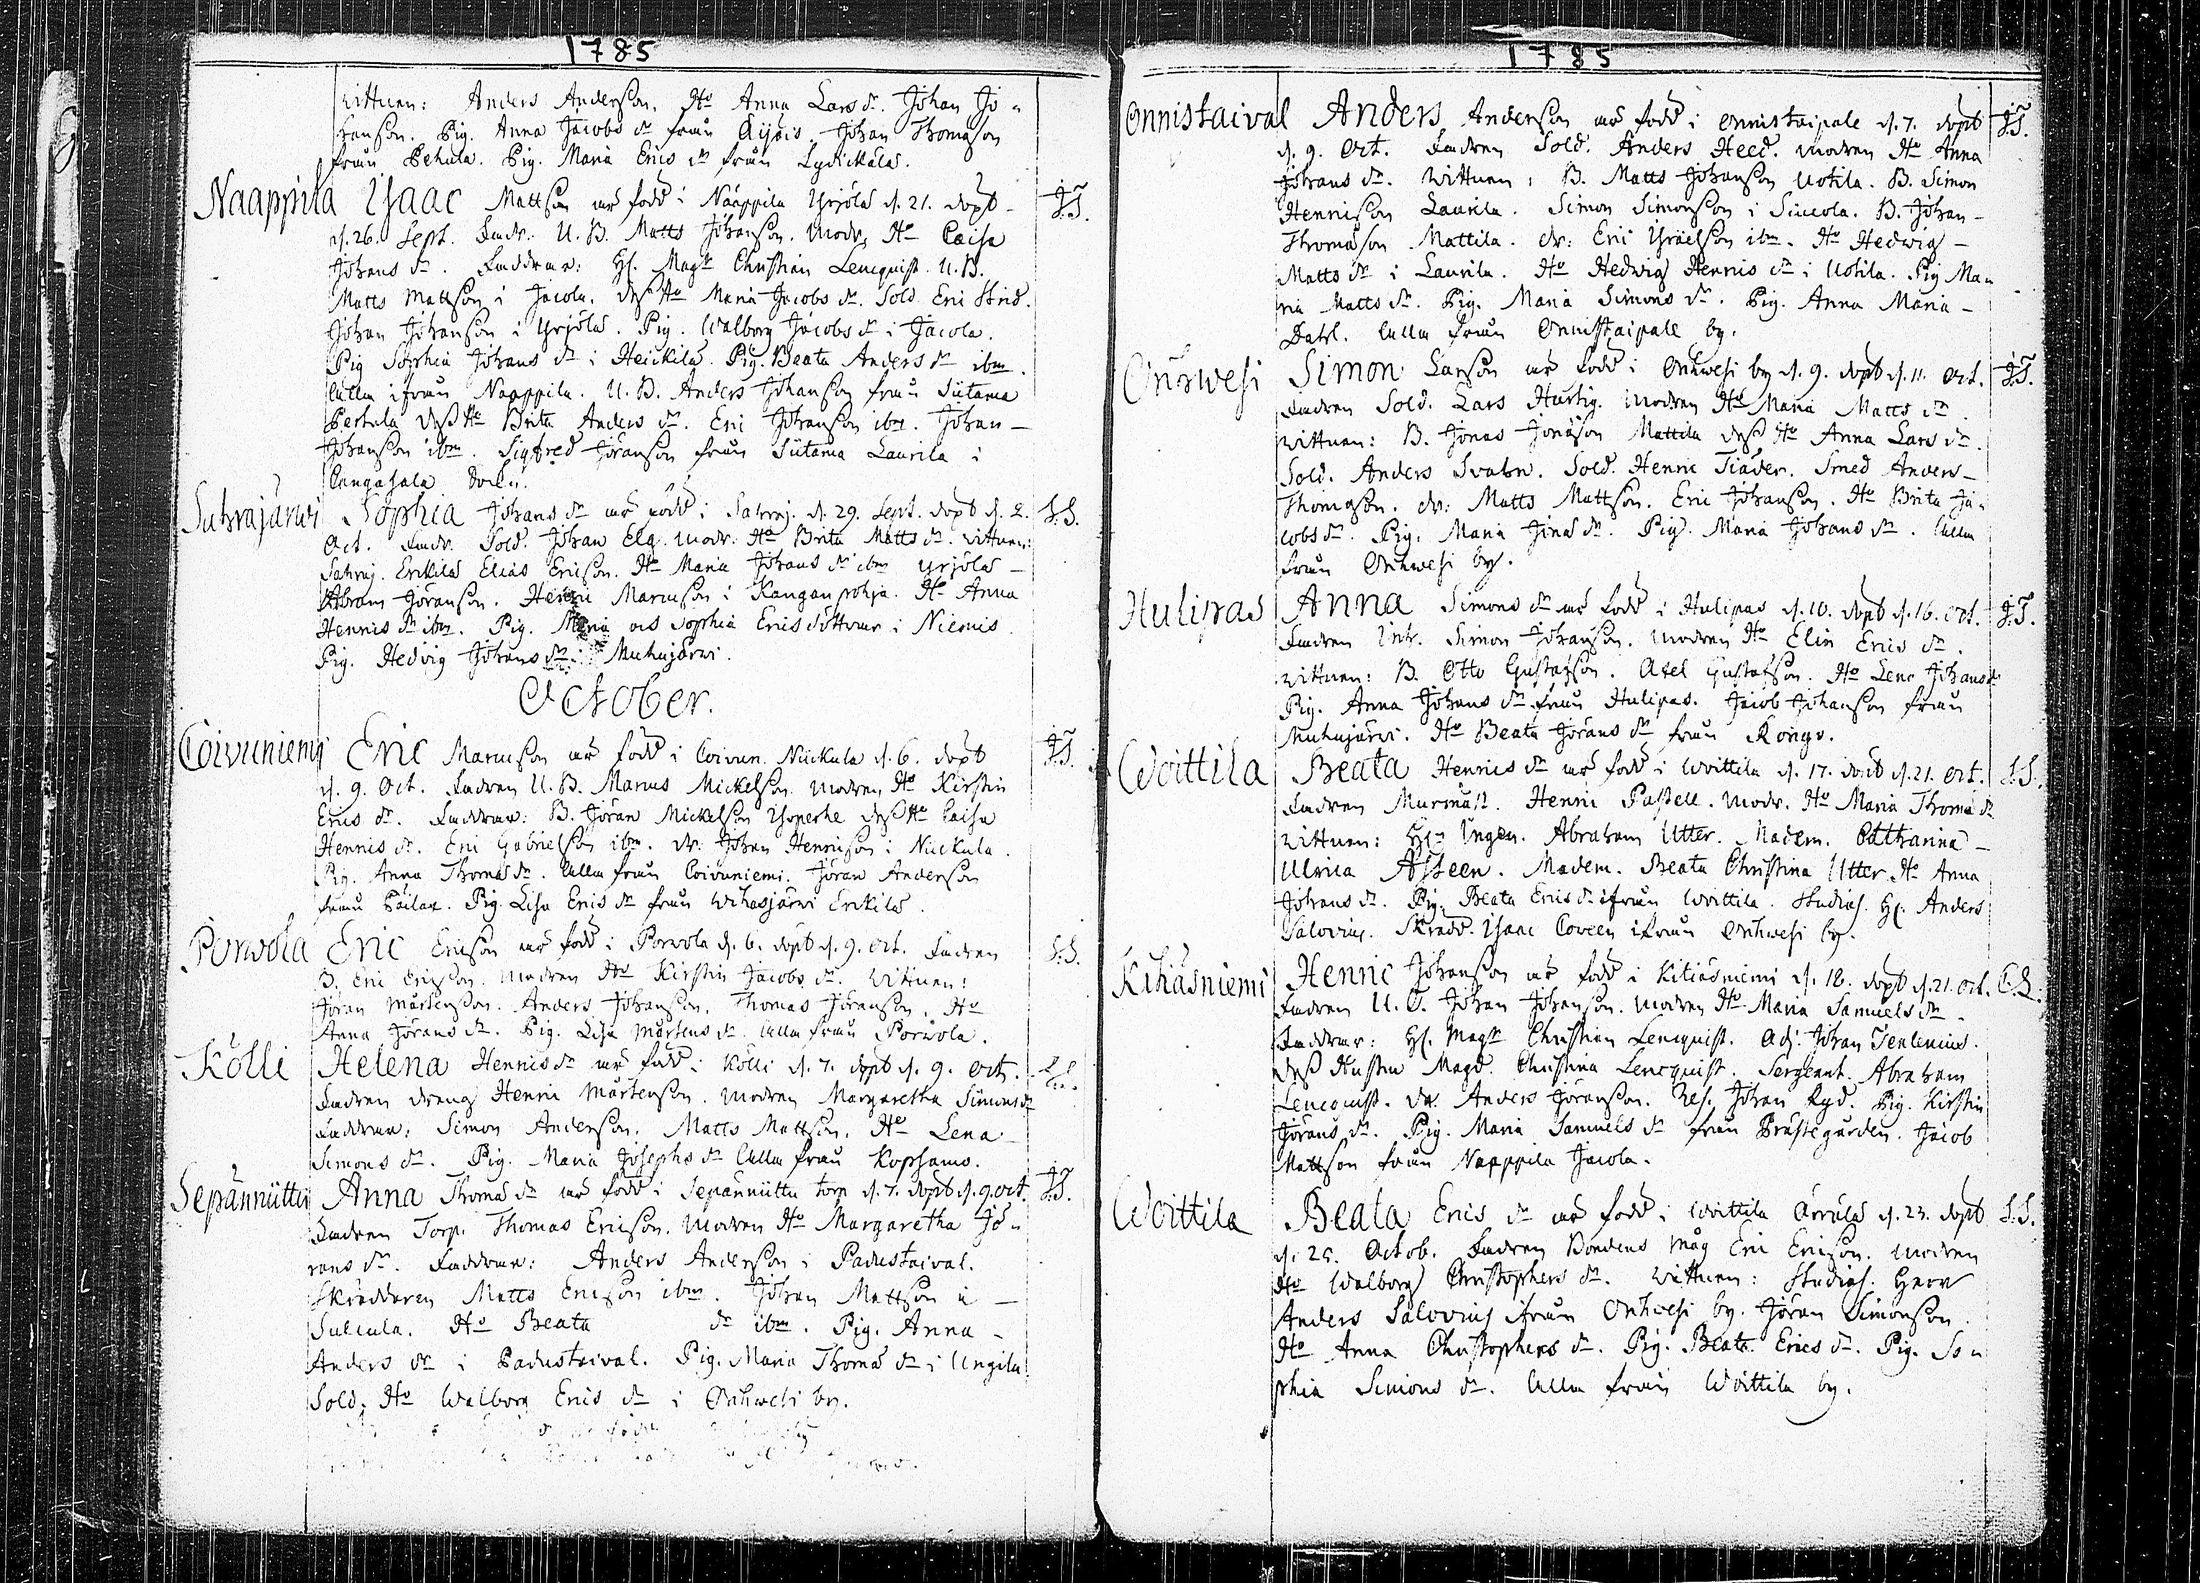 1785
vittnen: Anders Anderson. Ho Anna Lars dr. Johan Jo-
hanson. Pig. Anna Jacobs dr från Äijäis. Johan Thomason
från Pehula. Pig. Maria Erics dr från Lydickälä.
Naappila Isaac Mattson är född i Naappila Yrjölä d. 21. döpt J.T.
d. 26. Sept. Fadr. U.B. Matts Johanson. Modr. Ho Caisa
Johans dr. Faddrar: Hr. Magr Christian Lencquist. U.B.
Matts Mattson i Jacola. dess Ho Maria Jacobs dr. Sold Eric Strid.
Johan Johanson i Yrjölä. Pig. Walborg Jacobs dr i Jacola.
Pig Sophia Johans dr i Heickilä. Pig. Beata Anders dr ibm.
alla ifrån Naappila. U.B. Anders Johanson från Sütama
Pertula dess Ho Brita Anders dr. Eric Johanson ibm. Johan
Johanson ibm. Sigfred Jöranson från Sütama Laurila i
Cangasala Sockn.
Sahrajärwi Sophia Johans dr är född i Sahraj. d. 29. Sept. döpt d. 2. S.S.
Oct. Fadr. Sold. Johan Elg. Modr. Ho Brita Matts dr. vittnen:
Sahraj. Erikilä Elias Ericson. Ho Maria Johans dr ibm Yrjölä
Abram Jöranson. Henric Marcuson i Kanganpohja. Ho Anna
Henrics dr ibm. Pig. Maria och Sophia Erics döttrar i Niemis
Pig. Hedvig Johans dr i Muhujärvi.
October.
Coivuniemi Eric Marcuson är född i Coivun. Nückula d. 6. döpt J.T.
d. 9. Oct. Fadren U.B. Marcus Mickelson. Modren Ho Kirstin
Erics dr. Faddrar: B. Jöran Mickelson Ysoperhe dess Ho Caisa
Henrics dr. Eric Gabrielson ibm. dr. Johan Henricson i Nückula.
Pig. Anna Thomas dr. alla från Coivuniemi. Jöran Anderson
från Pailax. Pig. Lisa Erics dr från Wihasjärvi Erikilä.
Porvola Eric Ericson är född i Porvola d. 6. döpt d. 9. Oct. Fadren S.S.
B. Eric Ericson. Modren Ho Kirstin Jacobs dr. vittnen:
Jöran Mårtenson. Anders Johanson. Thomas Jöranson. Ho
Anna Jörans dr. Pig. Lisa Mårtens dr. alla från Porvola.
Kölli Helena Henrics dr är född i Kölli d. 7. döpt d. 9. Oct.
Fadren dreng Henric Mårtenson. Modren Margaretha Simons dr
Faddrar: Simon Anderson. Matts Mattson. Ho Lena
Simons dr. Pig. Maria Josephs dr alla från Kopsamo.
Sepänniittu Anna Thomas dr är född i Sepänniittu torp d. 7. döpt d. 9. Oct. J.T.
Fadren Torp. Thomas Ericson. Modren Ho Margaretha Jö-
rans dr. Faddrar: Anders Anderson i Padustaival.
Skräddaren Matts Ericson ibm. Johan Mattson i
Sulcula. Ho Beata dr ibm. Pig. Anna
Anders dr i Padustaival. Pig. Maria Thomas dr i Ungila
Sold. Ho Walborg Erics dr i Onhwesi by.
1785
Onnistaival Anders Anderson är född i Onnistaipale d. 7. döpt J.T.
d. 9. Oct. Fadren Sold. Anders Heed. Modren Ho Anna
Johans dr. vittnen: B. Matts Johanson Uotila. B. Simon
Henricson Laurila. Simon Simonson i Siucola. B. Johan
Thomason Mattila. dr: Eric Yrjäelson ibm. Ho Hedwig
Matts dr i Laurila. Ho Hedwig Henrics dr i Uotila. Pig Ma-
ria Matts dr. Pig. Maria Simons dr. Pig. Anna Maria
Dahl. alla från Onnistaipale by.
Onhwesi Simon Larson är född i Onhwesi by d. 9. döpt d. 11. Oct. J.T.
Fadren Sold. Lars Hurtig. Modren Ho Maria Matts dr.
vittnen: B. Jonas Jonason Mattila dess Ho Anna Lars dr.
Sold. Anders Svahn. Sold. Henric Tiäder. Smed Anders
Thomason. dr. Matts Mattson. Eric Johanson. Ho Brita Ja-
cobs dr. Pig. Maria dr. Pig. Maria Johans dr. alla
från Onhwesi by.
Hulipas Anna Simons dr är född i Hulipas d. 10. döpt d. 16. Oct. J.T.
Fadren Inh. Simon Johanson. Modren Ho Elin Erics dr.
vittnen: B. Otto Gustafson. Axel Gustafson. Ho Lena Johans dr
Pig. Anna Johans dr från Hulipas. Jacob Johanson från
Muhujärvi. Ho Beata Jörans dr från Köngs.
Woittila Beata Henrics dr är född i Woittila d. 17. döpt d. 21. Oct. S.S.
Fadren Murmäst. Henric Passell. Modr. Ho Maria Thomas dr
vittnen: Hr Ungern. Abraham Utter. Madem. Catharina
Ulrica Asteen. Madem. Beata Christina Utter. Ho Anna
Johans dr. Pig. Beata Erics dr ifrån Woittila. Studios. Hr. Anders
Salovius. Skrädd. Isaac Coveen ifrån Onhwesi by.
Kihäsniemi Henric Johanson är född i Kihäsniemi d. 18. döpt d. 21. Oct. C.L.
Fadren U.O. Johan Johanson. Modren Ho Maria Samuels dr.
Faddrar: Hr. Magr Christian Lencquist. Adj. Johan Tenlenius.
dess Hustru Magd. Christina Lencquist. Sergeant. Abraham
Lencquist. dr. Anders Jöranson. Res. Johan Ryd. Pig. Kirstin
Jörans dr. Pig. Maria Samuels dr från Prästegården. Jacob
Mattson från Nappila Jacola.
Woittila Beata Erics dr är född i Woittila Arrulä d. 23. döpt S.S.
d. 25. Octob. Fadren Bondens måg Eric Ericson. Modren
Ho Walborg Christophers dr. vittnen: Studios. Herr
Anders Salovius ifrån Onhwesi by. Jöran Simonson.
Ho Anna Christophers dr. Pig. Beata Erics dr. Pig. So-
phia Simons dr. alla från Woittila by.